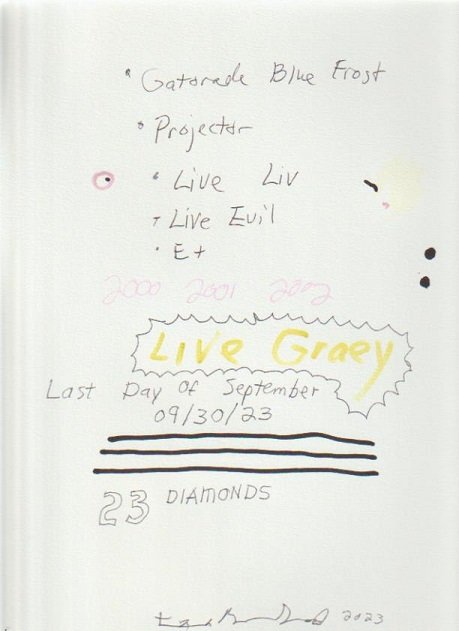 • Gatorade Blue Frost
• Projector
• Live Liv
• Live Evil
• E+
2000 2001 2002
Live Graey
Last Day Of September
09/30/23
23 DIAMONDS
2023